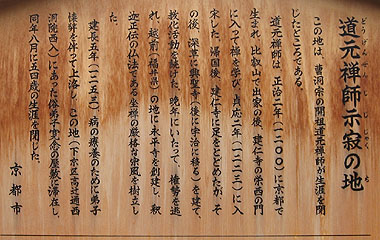 どうげんぜんじじじゃくのち
道元禅師示寂の地
この地は、曹洞宗の開祖道元禅師が生涯を閉
じたところである。
道元禅師は、正治二年(一二〇〇)に京都で
生まれ、比叡山で出家の後、建仁寺の栄西の門
に入って禅を学び、貞応二年(一二二三)に入
宋した。帰国後、建仁寺に足をとどめたが、そ
の後、深草に興聖寺(後に宇治に移る)を建て、
教化活動を続けた。晩年にいたって、権勢を逃
れ、越前(福井県)の地に永平寺を創建し、釈
迦正伝の仏法である坐禅の厳格な宗風を樹立し
た。
建長五年(一二五三)病の療養のために弟子
懐弉を伴って上洛し、この地(下京区高辻通西
洞院西入)にあった俗弟子覚念の屋敷に滞在し、
同年八月に五四歳の生涯を閉じた。
京都市